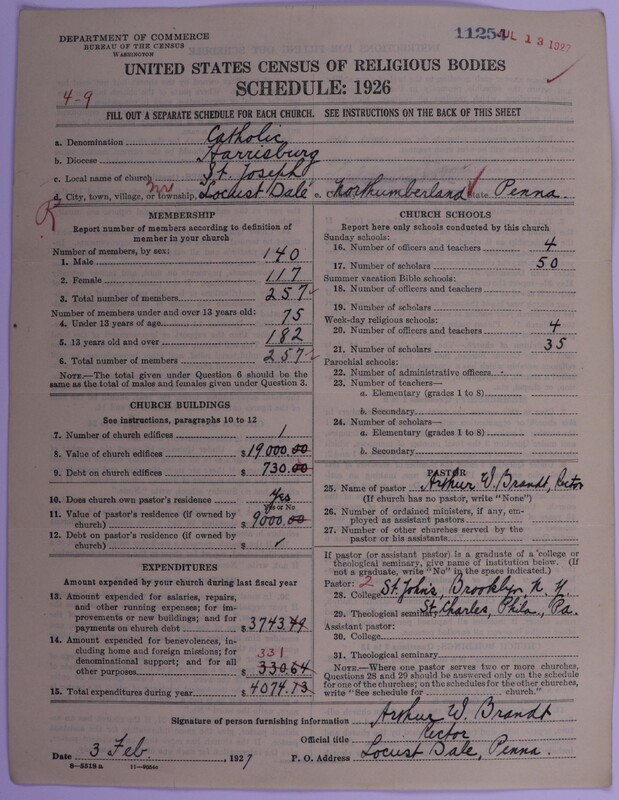 DEPARTMENT OF COMMERCE
BUREAU OF THE CENSUS
WASHINGTON
11254 JUL 13 1927
UNITED STATES CENSUS OF RELIGIOUS BODIES
SCHEDULE: 1926
4-9
FILL OUT A SEPARATE SCHEDULE FOR EACH CHURCH. SEE INSTRUCTIONS ON THE BACK OF THIS SHEET
a. Denomination Catholic
b. Diocese Harrisburg
c. Local name of church St. Joseph
d. City, town, village, or township, Locust Dale e. C Northumberland State Penna.
MEMBERSHIP
Report number of members according to definition of
member in your church
Number of members, by sex:
1. Male 140
2. Female 117
3. Total number of members 257
Number of members under and over 13 years old:
4. Under 13 years of age 75
5. 13 years old and over 182
6. Total number of members 257
NOTE.—The total given under Question 6 should be
the same as the total of males and females given under Question 3.
CHURCH BUILDINGS
See instructions, paragraphs 10 to 12
7. Number of church edifices 1
8. Value of church edifices $19000.00
9. Debt on church edifices $730.00
10. Does church own pastor's residence Yes
Yes or No
11. Value of pastor's residence (if owned by
church) $9000.00
12. Debt on pastor's residence (if owned by
church) $
EXPENDITURES
Amount expended by your church during last fiscal year
13. Amount expended for salaries, repairs,
and other running expenses; for im-
provements or new buildings; and for
payments on church debt $3743.49
14. Amount expended for benevolences, in-
cluding home and foreign missions; for
denominational support; and for all
331
other purposes $330.64
15. Total expenditures during year $4074.13
CHURCH SCHOOLS
Report here only schools conducted by this church
Sunday schools:
16. Number of officers and teachers 4
17. Number of scholars 50
Summer vacation Bible schools:
18. Number of officers and teachers
19. Number of scholars
Week-day religious schools:
20. Number of officers and teachers 4
21. Number of scholars 35
Parochial schools:
22. Number of administrative officers
23. Number of teachers—
a. Elementary (grades 1 to 8)
b. Secondary
24. Number of scholars—
a. Elementary (grades 1 to 8)
b. Secondary
PASTOR
25. Name of pastor Arthur W. Brandt, Rector
(If church has no pastor, write "None")
26. Number of ordained ministers, if any, em-
ployed as assistant pastors
27. Number of other churches served by the
pastor or his assistants
If pastor (or assistant pastor) is a graduate of a college or
theological seminary, give name of institution below. (If
not a graduate, write "No" in the space indicated.)
Pastor: 2
28. College St. John's, Brooklyn, N. Y.
29. Theological seminary St. Charles, Phila., Pa.
Assistant pastor:
30. College
31. Theological seminary
NOTE.—Where one pastor serves two or more churches,
Questions 28 and 29 should be answered only on the schedule
for one of the churches; on the schedules for the other churches,
write "See schedule for church."
Signature of person furnishing information Arthur W. Brandt
Official title Rector
Date 3 Feb. , 1927 P. O. Address Locust Dale, Penna.
8-5518a 11-9054a